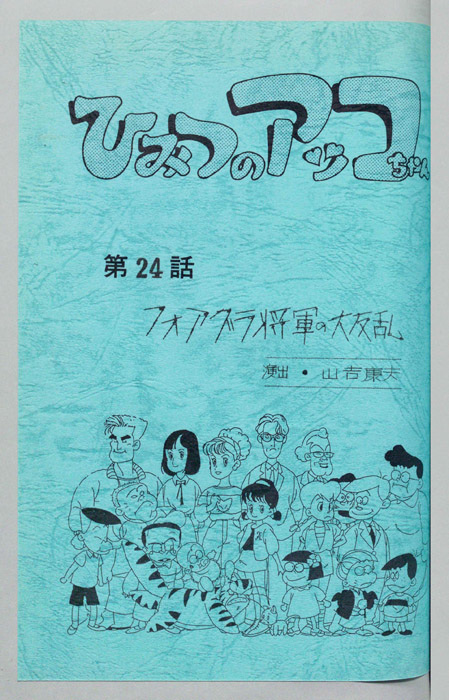 ひみつのアッコちゃん
第24話
フォアグラ将軍の大反乱
演出・山吉康夫